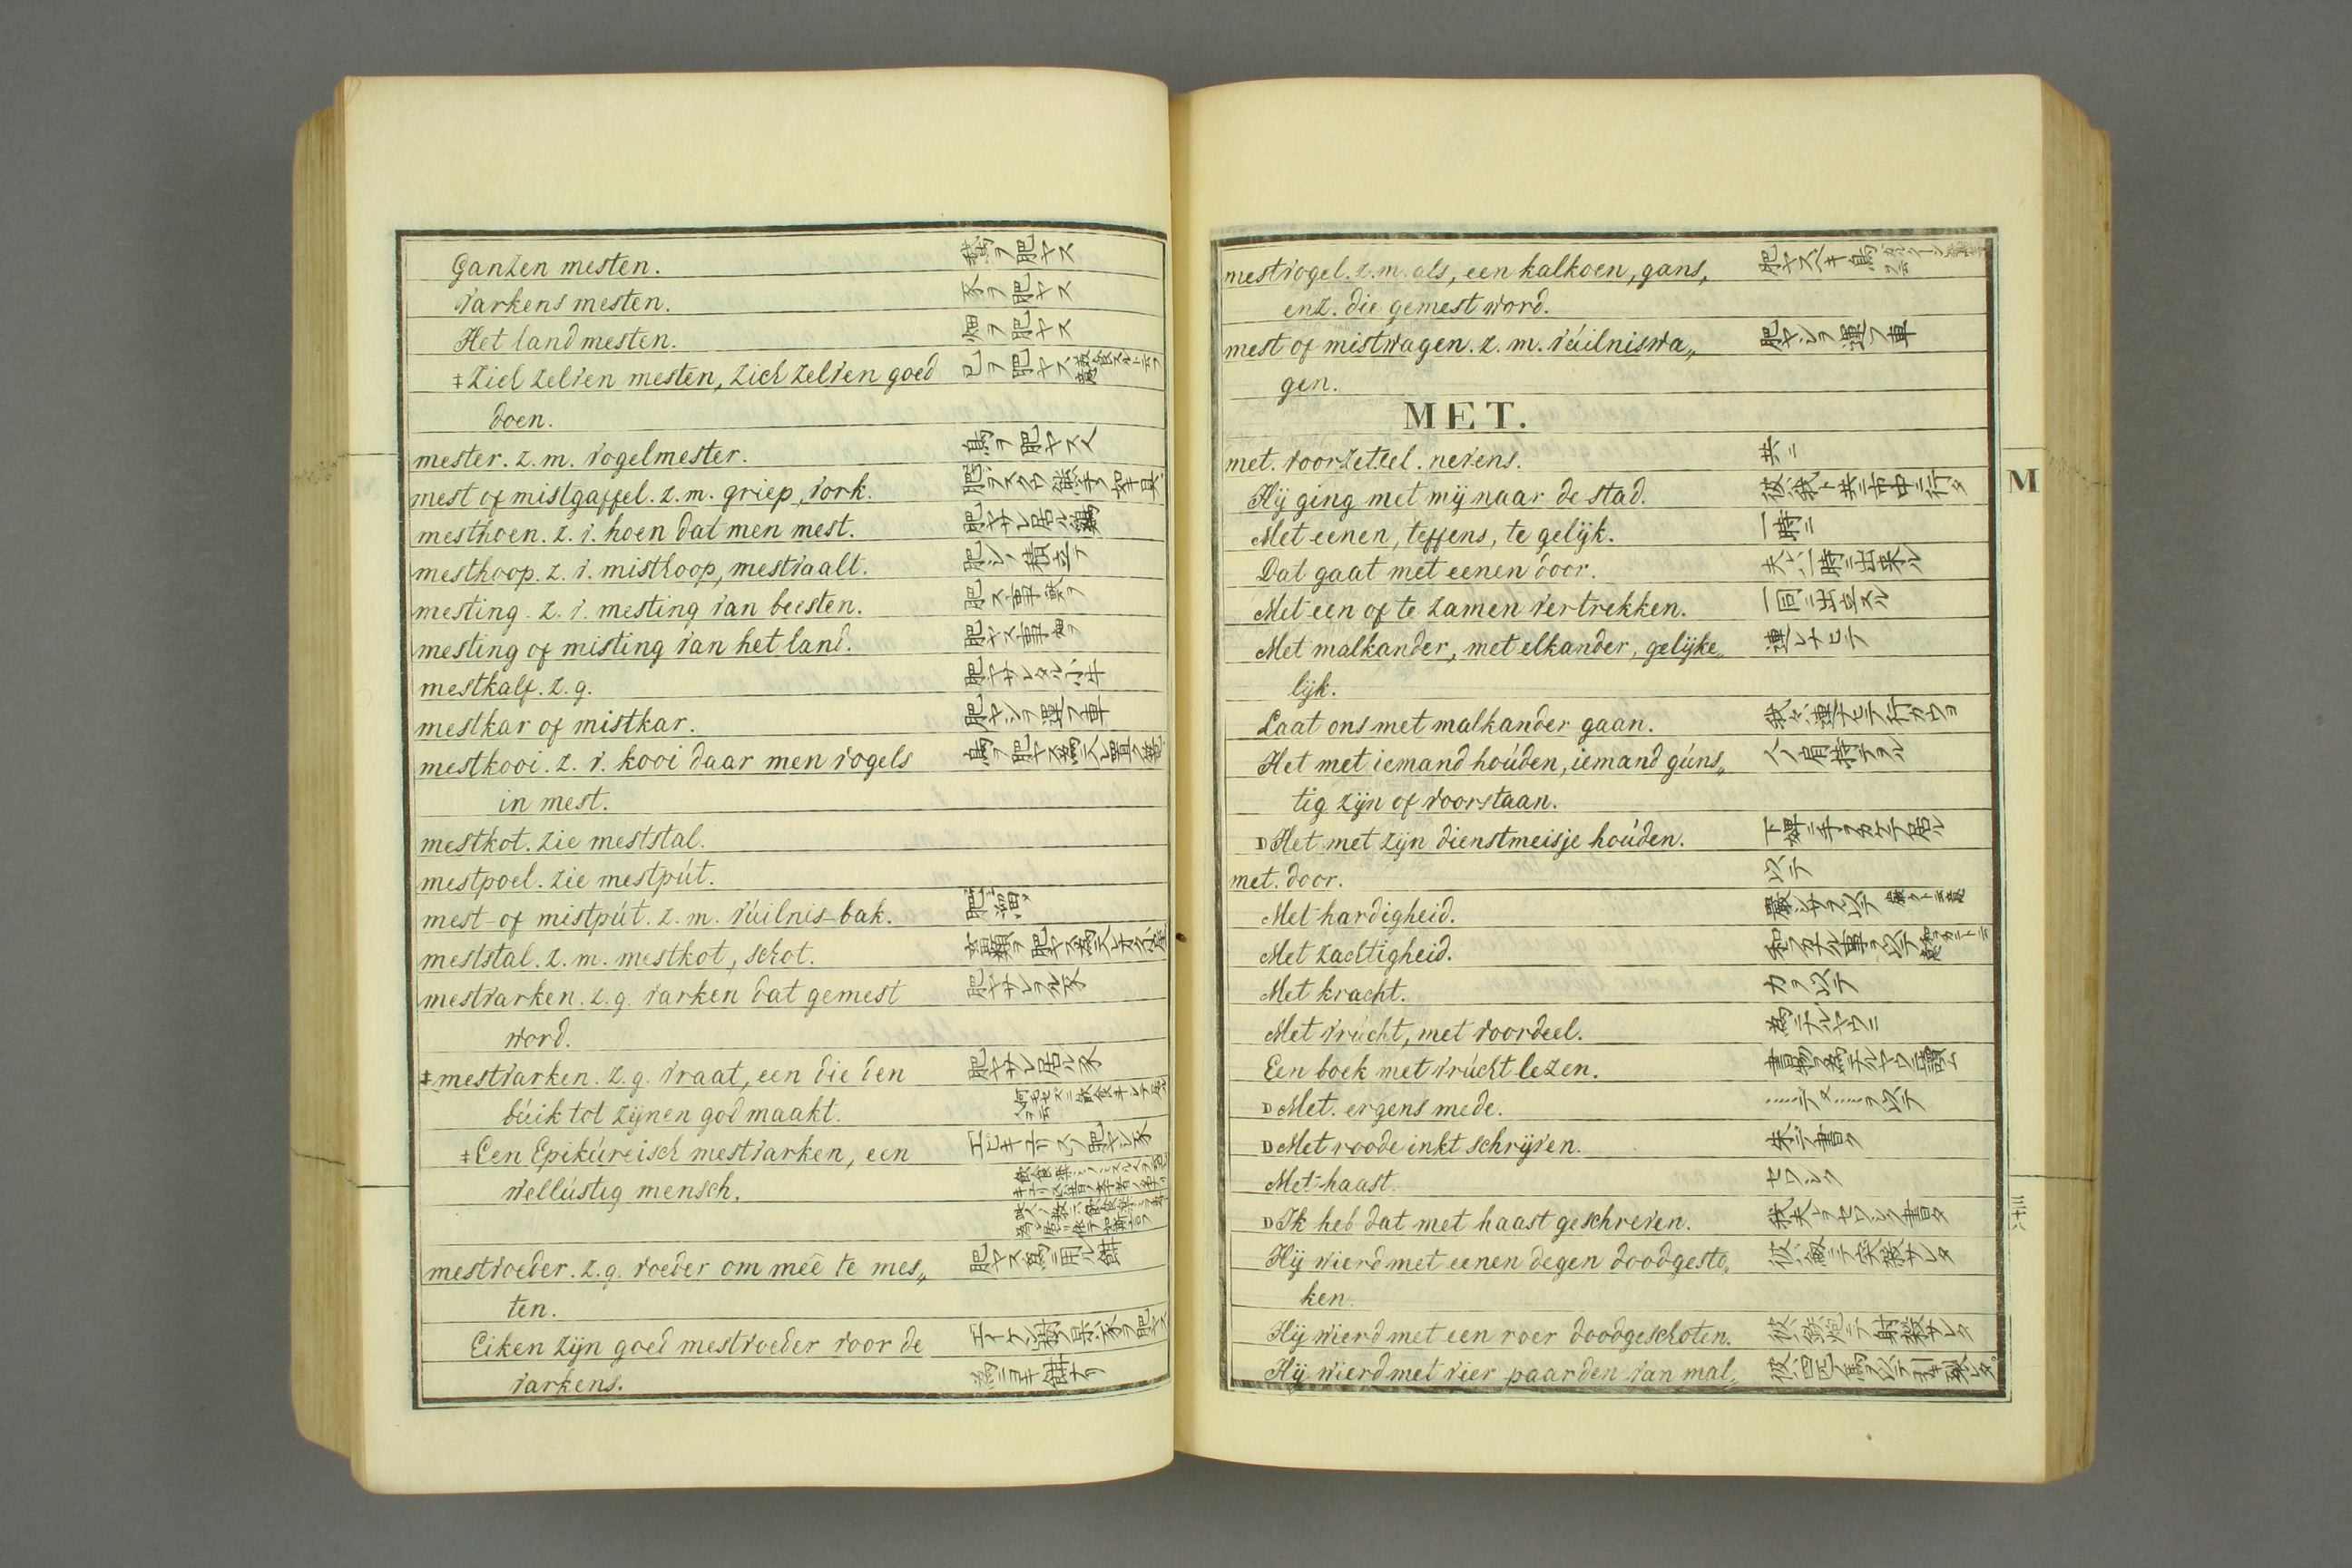 Ganzen mesten. 鵞ヲ肥ヤス
varkens mesten. 豕ヲ肥ヤス
Het land mesten. 畑ヲ肥ヤス
‡Ziel zelven mesten, zich zelven goed 己ヲ肥ヤス
doen.
mester. z.m. vogelmester. 鳥ヲ肥ヤス人
mest of mistgaffel. z.m. griep, vork.
mesthoen. z.v. hoen dat men mest. 肥ヤサレ居ル鶏
mesthoop. z.v. misthoop, mestvaalt. 肥シノ積立テ
mesting. z.v. mesting van beesten. 肥ス事
mesting of misting van het land. 肥ヤス事
mestkalf. z.g. 肥ヤサレタル小牛
mestkar of mistkar. 肥ヤシヲ運フ車
mestkooi. z.v. kooi daar men vogels 鳥ヲ肥ヤス為ニ入レ置ク
in mest.
mestkot. zie meststal.
mestpoel. zie mestpút.
mest- of mistpút. z.m. vúilnis-bak. 肥溜
meststal. z.m. mestkot, schot.
mestvarken. z.g. varken dat gemest 肥ヤサレヲル豕
word.
‡mestvarken. z.g. vraat, een die den 肥ヤサレ居ル豕
búik tot zijnen god maakt.
‡Een Epikúreisch mestvarken, een
wellústig mensch.
mestvoeder. z.g. voeder om meê te mes„ 肥ヤス為ニ用ル餌
ten.
Eiken zijn goed mestvoeder voor de
varkens.
mestvogel. z.m. als, een kalkoen, gans, 肥ヤスヘキ鳥
enz. die gemest word.
mest of mistwagen. z.m. vúilniswa„ 肥ヤシヲ運フ車
gen.
MET.
met. voorzetsel. nevens. 共ニ
Hij ging met mij naar de stad. 彼ハ我ト共ニ市中ニ行タ
M
Met eenen, teffens, te gelijk. 一時ニ
Dat gaat met eenen door. 夫レハ一時ニ出来ル
Met een of te zamen vertrekken. 一同ニ出立スル
Met malkander, met elkander, gelijke„
lijk.
Laat ons met malkander gaan.
Het met iemand hoúden, iemand gúns„
tig zijn of voorstaan.
D Het met zijn dienstmeisje hoúden.
met. door. 以テ
Met hardigheid.
Met zachtigheid.
Met kracht. 力ヲ以テ
Met vrúcht, met voordeel. 為ニナルヤウニ
Een boek met vrúcht lezen.
D Met. ergens mede.
D Met roode inkt schrijven. 朱ニテ書ク
Met haast. セワシク
D Ik heb dat met haast geschreven. 我夫レヲセワシク書タ
Hij wierd met eenen degen doodgesto„
ken.
Hij wierd met een roer doodgeschoten. 彼ハ鉄炮ニテ射殺サレタ
Hij wierd met vier paarden van mal„